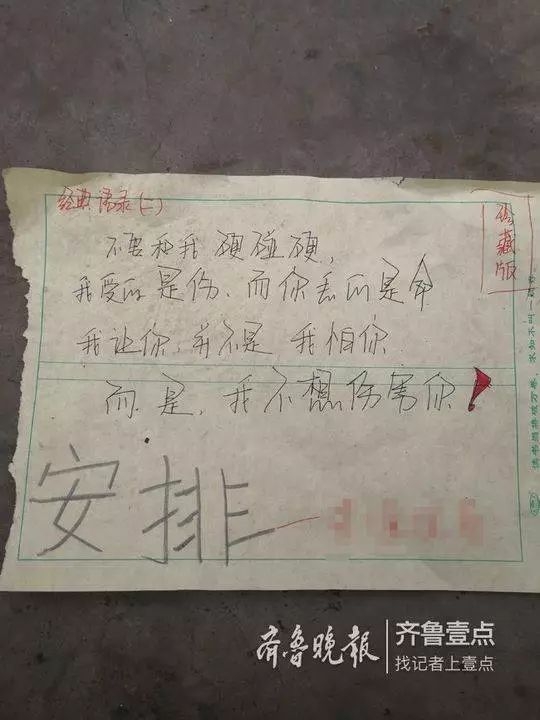 经典语录(二)
珍藏版
不要和我硬碰硬,
我受的是伤、而你丢的是命
我让你,并不是我怕你
而是,我不想伤害你!
安排
齐鲁晚报
齐鲁壹点
找记者上壹点